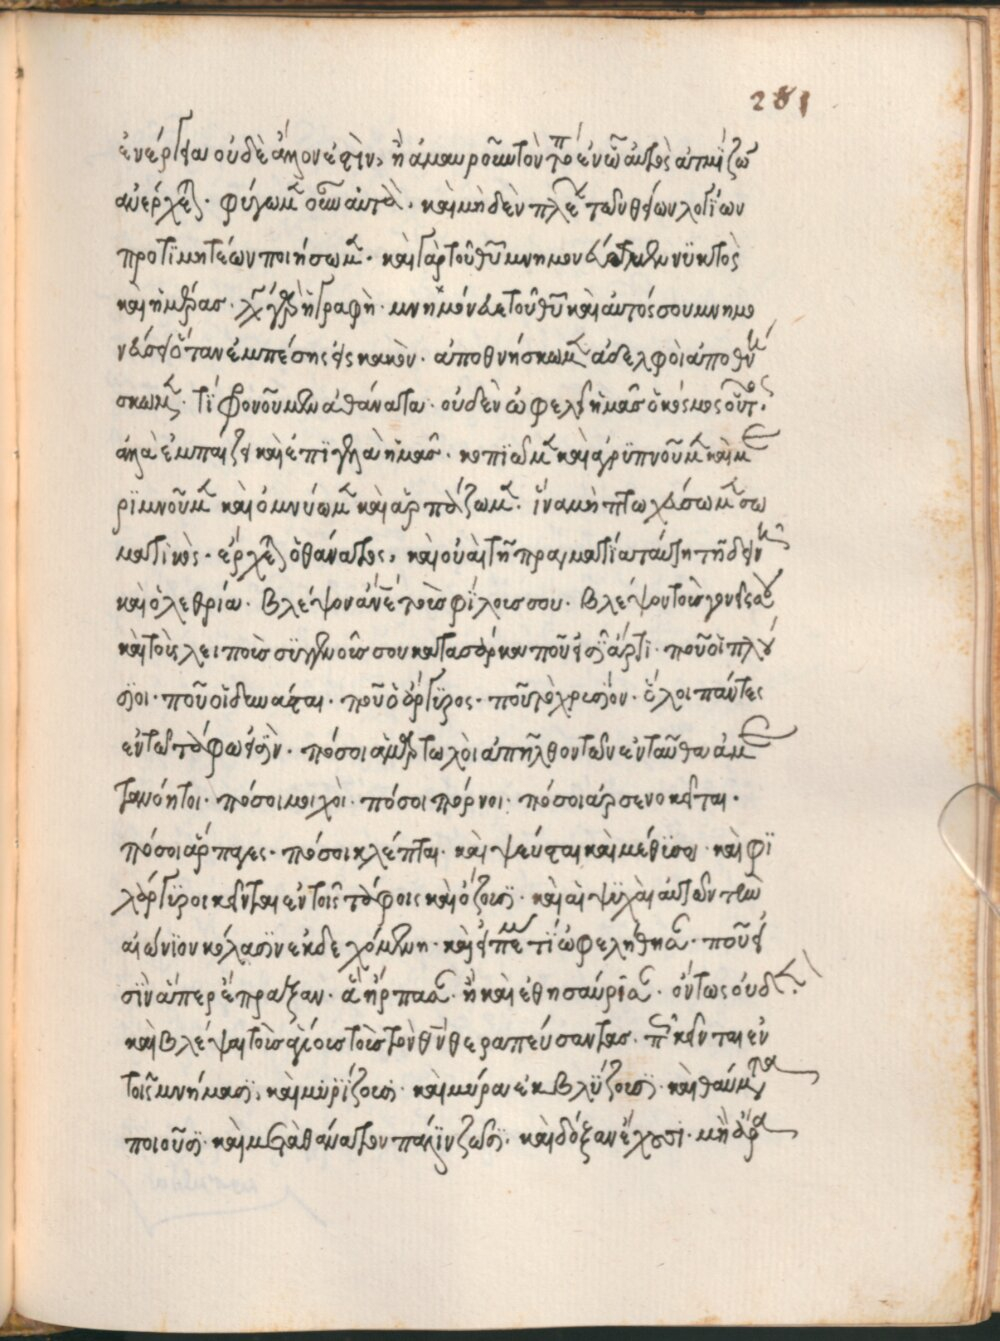 281
ἐνέργειαν οὐδὲ ἄλλον ἐστὶν, ἢ ἁμαυροῦν τὸν τόπον ἐν ᾧ αὐτὸς
ἀνέρχεται. φύγωμεν οὖν αὐτὸ. καὶ μηδὲν πλέον τῶν θείων λογίων
προτιμητέων ποιήσωμεν. καὶ γὰρ τοῦ θεοῦ μνημονεύετε νϋκτὸς
καὶ ἡμέρας. λέγει γὰρ ἡ γραφὴ. μνημόνευε τοῦ θεοῦ καὶ αὐτός σου μνημο
νεύσει ὅταν ἐμπέσης εἰς κακὸν. ἀποθνήσκωμεν ἀδελφοὶ ἀποθνή
σκωμεν. τί φρονοῦμεν ἀθάνατα. οὐδὲν ὠφελεῖ ἡμᾶς ὁ κόσμος οὗτος.
ἀλλὰ ἐμπαίζει καὶ ἐπιγελᾶ ἡμᾶς. κοπιῶμεν καὶ ἀγρϋπνοῦμεν καὶ με
ριμνοῦμεν καὶ ὀμνύωμεν καὶ ἁρπάζωμεν. ἵνα μὴ πτωχεύσωμεν σω
ματικὸς. ἔρχεται ὁ θάνατος, καὶ οὐαὶ τῇ πραγματία ταύτη τῇ δεινῇ
καὶ ὀλεθρία. βλέψον ἄνθρωπε τοὺς φίλους σου. βλέψον τοὺς γονεῖς σου
καὶ τοὺς λειποὺς σϋγγενοῖς σου κατὰ σάρκα ποῦ εἰσὶν ἄρτι. ποῦ οἱ πλού
σιοι. ποῦ οἱ δυνάσται. ποῦ ὁ ἄργϋρος. ποῦ τὸ χρυσίον. ὅλοι πάντες
ἐν τῶ τάφω εἰσὶν. πόσοι ἁμαρτωλοὶ ἀπῆλθον τῶν ἐνταῦθα ἀμε
τανόητοι. πόσοι μοιχοὶ. πόσοι πόρνοι. πόσοι ἀρσενοκεῖται.
πόσοι ἅρπαγες. πόσοι κλέπται. καὶ ψεύσται καὶ μέθϋσοι. καὶ φϊ
λάργϋροι κεῖνται ἐν τοῖς τάφοις καὶ ὄζουσϊ. καὶ αἱ ψϋχαὶ αὐτῶν τὴν
αἰώνϊον κόλασϊν ἐκδεχόμεναι. καὶ εἰπέ μοι τί ὠφελήθησαν. ποῦ εἰ
σὶν ἅπερ ἔπραξαν. ἃ ἥρπασαν. ἢ καὶ ἐθησαύρισαν. ὄντως οὐδέν.
καὶ βλέψαι τοὺς ἁγίους τοὺς τὸν θεὸν θεραπεύσαντας. πῶς κεῖνται ἐν
τοῖς μνήμασϊ, καὶ μϋρϊζουσϊ. καὶ μύρα ἐκβλϋζουσϊ. καὶ θαύματα
ποιοῦσϊ. καὶ μετὰ θάνατον πάλϊν ζῶσϊ. καὶ δόξαν ἔχουσϊ. μὴ ἄρα